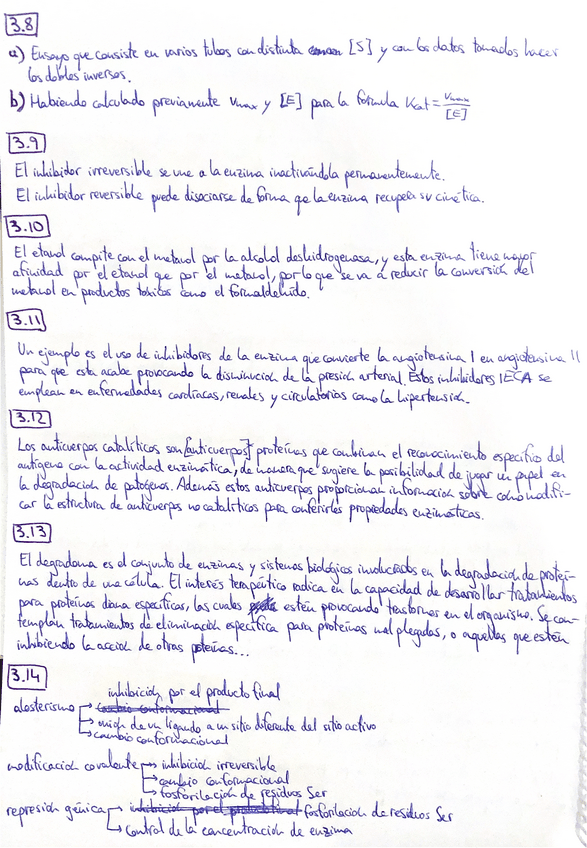 3.8
a) Ensayo que consiste en varios tubos con distinta [S] y con los datos tomados hacer
los dobles inversos.
b) Habiendo calculado previamente Vmax y [E] para la fórmula Kcat = Vmax/[E]
3.9
El inhibidor irreversible se une a la enzima inactivándola permanentemente.
El inhibidor reversible puede disociarse de forma qe la enzima recupela su cinética.
3.10
El etanol compite con el metanol por la alcohol deshidrogenasa, y esta enzima tiene mayor
afinidad por el etanol que por el metanol, por lo que se va a reducir la conversión del
metanol en productos tóxicos como el formaldehído.
3.11
Un ejemplo es el uso de inhibidores de la enzima que convierte la angiotensina I en angiotensina II
para que esta acabe provocando la disminución de la presión arterial. Estos inhibidores IECA se
emplean en enfermedades cardíacas, renales y circulatorias como la hipertensión.
3.12
Los anticuerpos catalíticos son [anticuerpos] proteínas que combinan el reconocimiento específico del
antígeno con la actividad enzimática, de manera que sugiere la posibilidad de jugar un papel en
la degradación de patógenos. Además estos anticuerpos proporcionan información sobre cómo modifi-
car la estructura de anticuerpos no catalíticos para conferirles propiedades enzimáticas.
3.13
El degradoma es el conjunto de enzimas y sistemas biológicos involucrados en la degradación de proteí-
nas dentro de una célula. El interés terapéutico radica en la capacidad de desarrollar tratamientos
para proteínas diana específicas, las cuales estén provocando trastornos en el organismo. Se con-
templan tratamientos de eliminación específica para proteínas mal plegadas, o aquellas que estén
inhibiendo la acción de otras proteínas...
3.14
inhibición por el producto final
alosterismo → cambio conformacional
→ unión de un ligando a un sitio diferente del sitio activo
→ cambio conformacional
modificación covalente → inhibición irreversible
→ cambio conformacional
→ fosforilación de residuos Ser
represión génica → inhibición por el producto final fosforilación de residuos Ser
→ control de la concentración de enzima